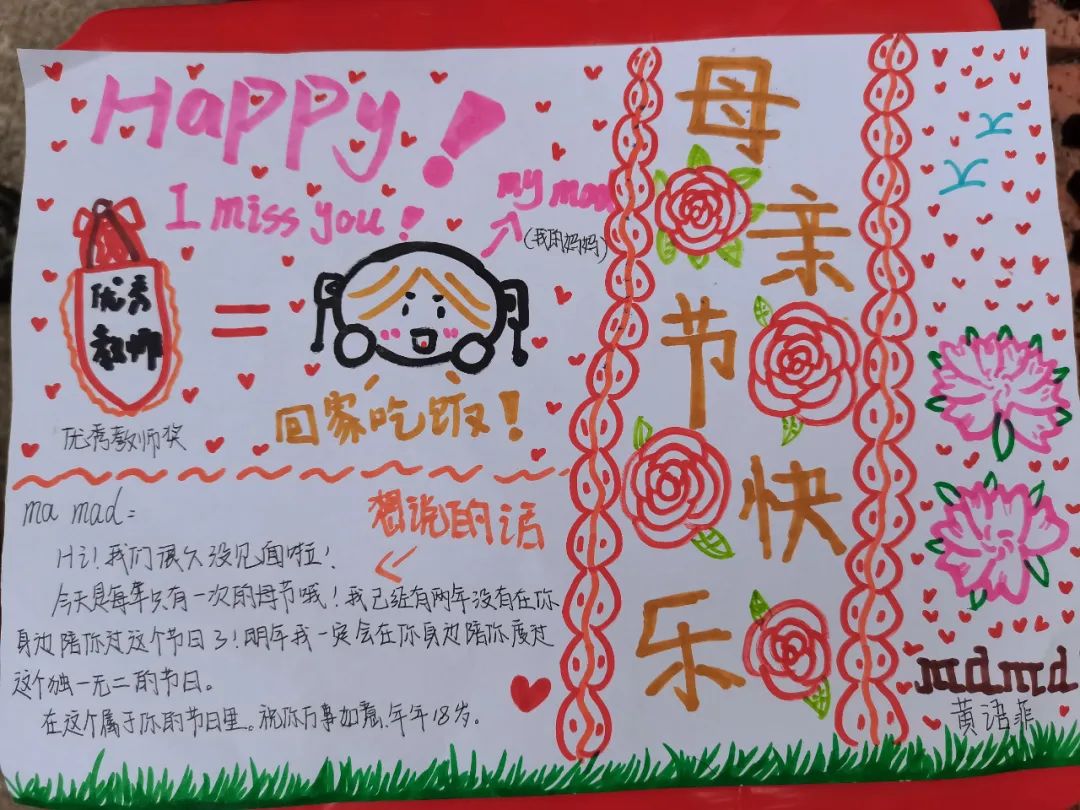 Happy!
I miss you!
my mad
(我的妈妈)
优秀
教师
=
优秀教师奖
回家吃饭!
想说的话
ma mad:
Hi!我们很久没见面啦!
今天是每年只有一次的母节哦!我已经有两年没有在你
身边陪你过这个节日了!明年我一定会在你身边陪你度过
这个独一无二的节日。
在这个属于你的节日里。祝你万事如意,年年18岁。
母亲节快乐
mdmd
黄语菲